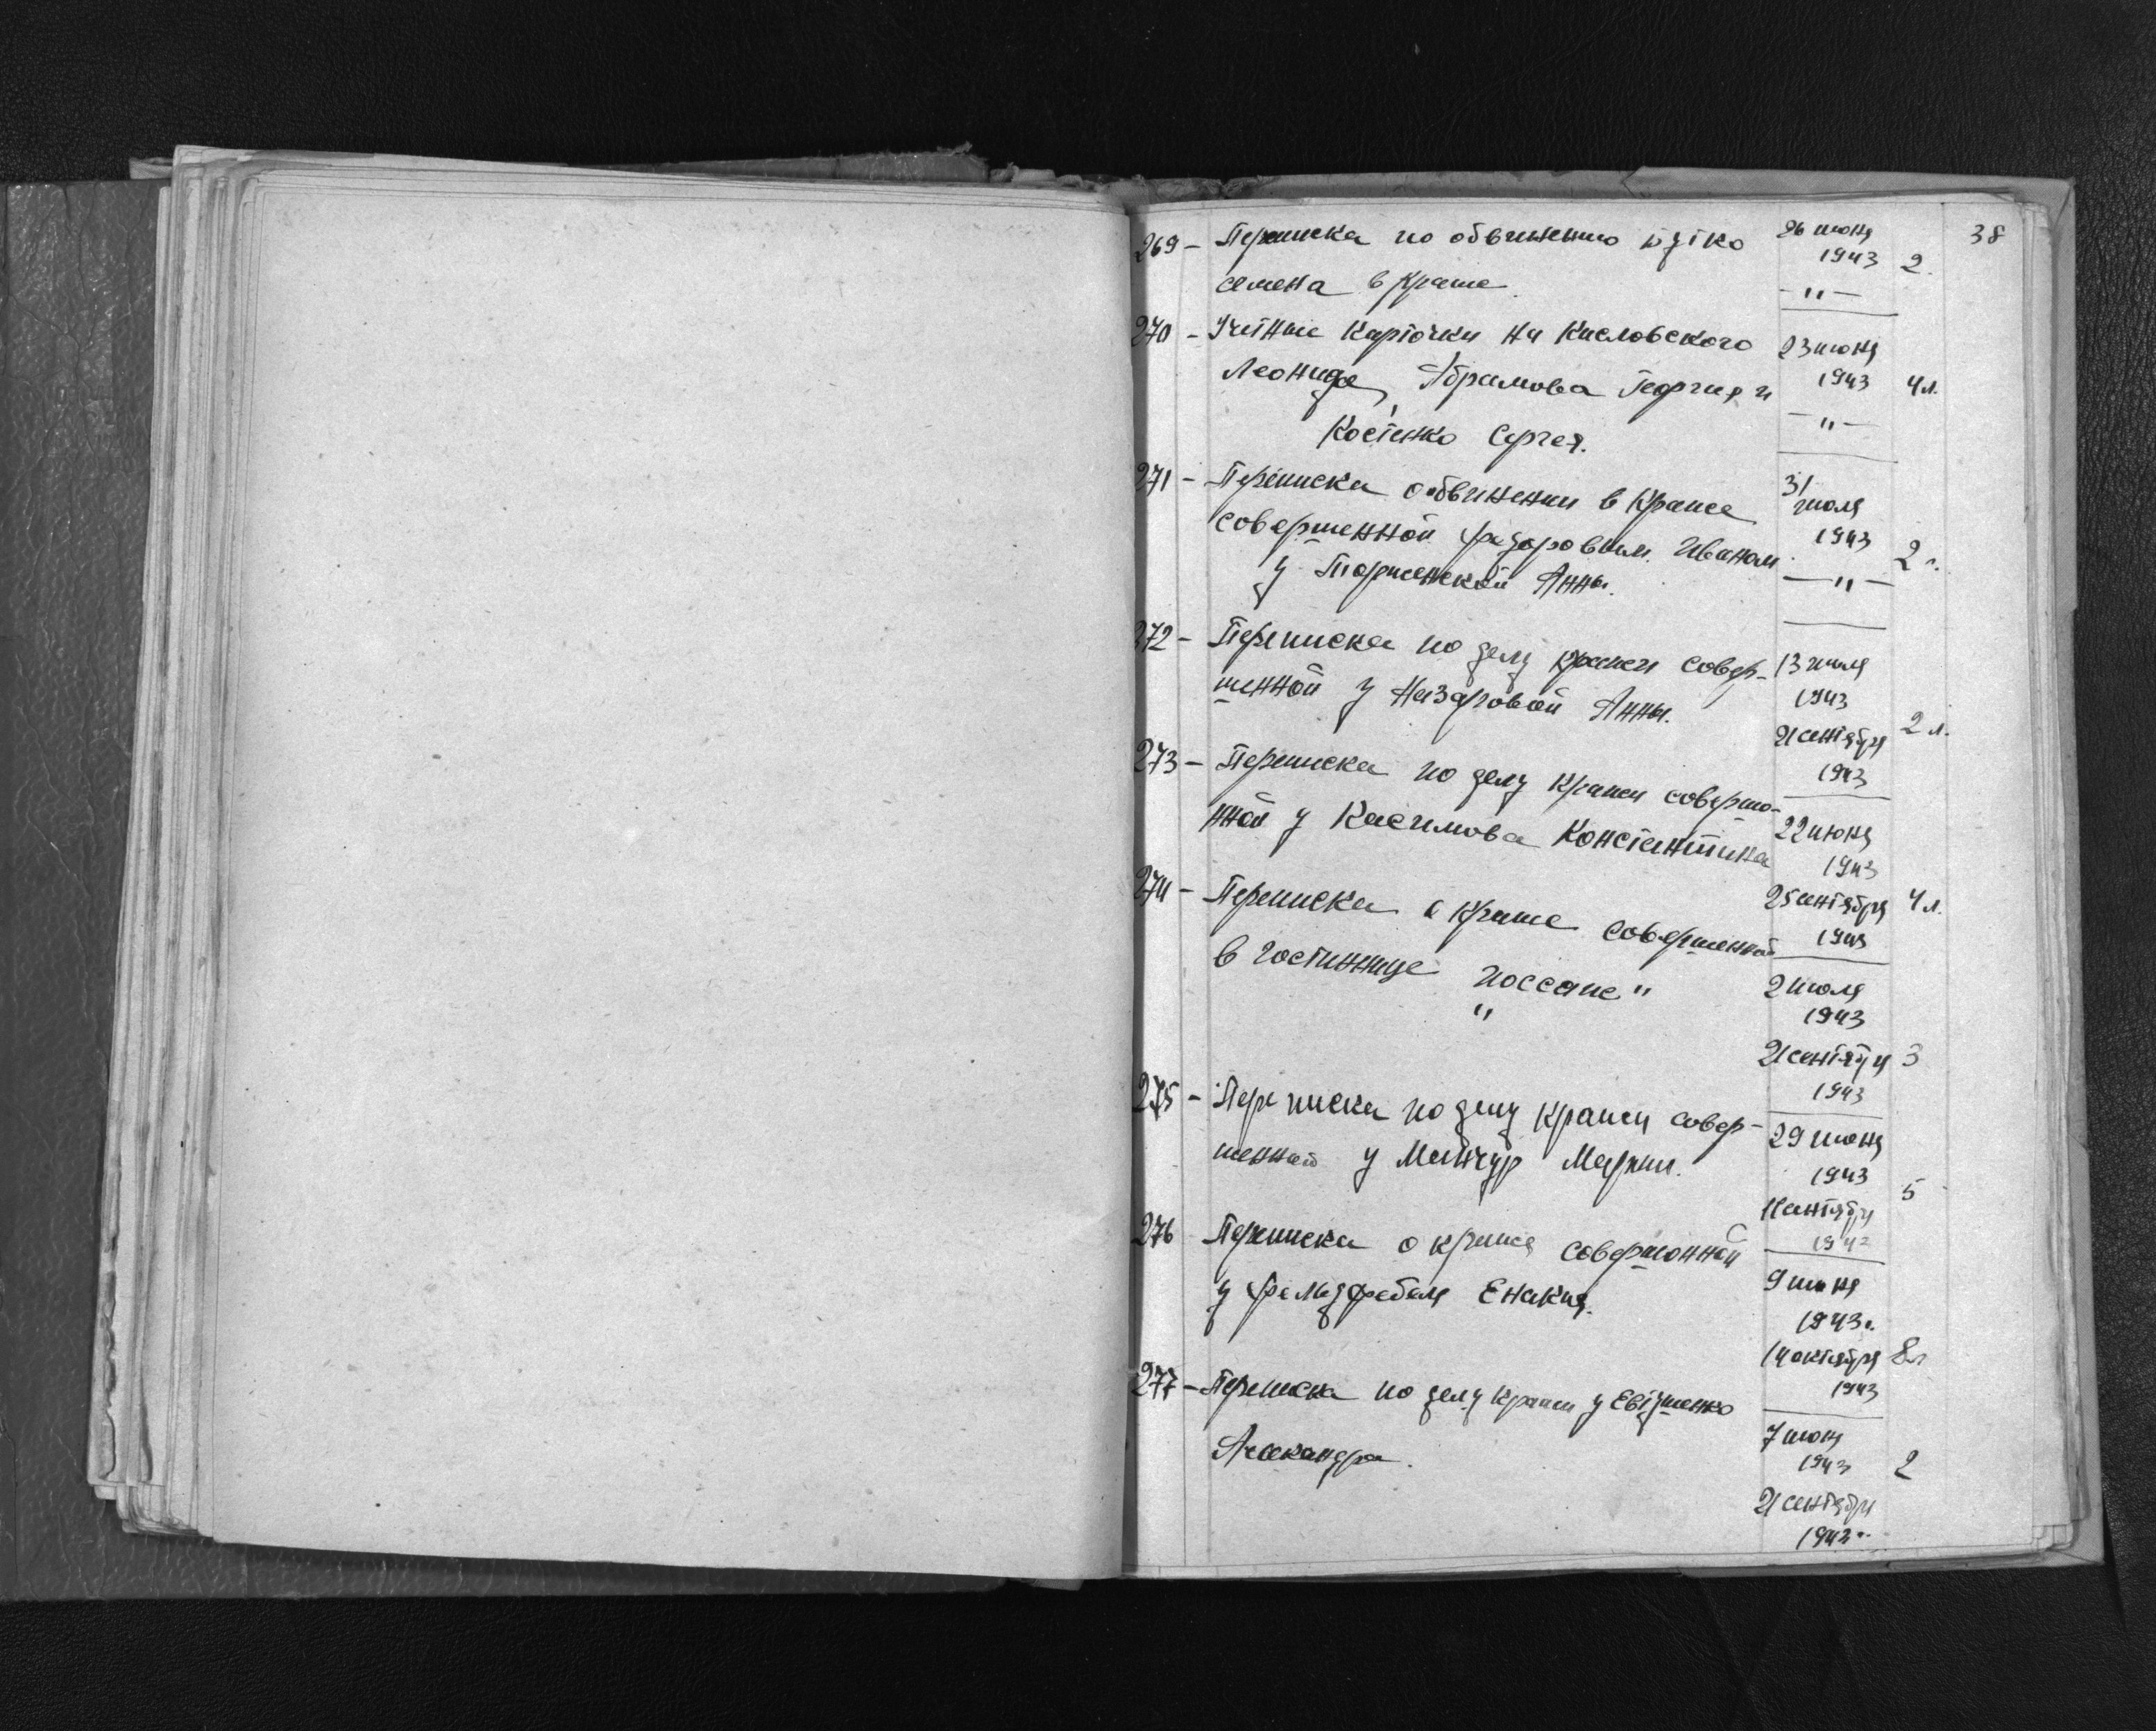 38
269 - Переписка по обвинению 26 июня
1943 2.
семена в краже. - " -
270 - Учетные карточки на Кисловского 23 июня
Леонида, Абрамова Георгия и 1943 4 л.
Костенко Сергея. - " -
271 - Переписка обвинении в краже 31 июля
совершенной Федоровым Иваном 1943 2
у Анны. - " -
272 - Переписка по делу кражи совер- 13 июля
1943
шенной у Назаровой Анны. 2 л.
21 сентября
1943
273 - Переписка по делу кражи соверше- 22 июня
нной у Касимова Константина 1943
25 сентября 4 л.
1943
274 - Переписка о краже совершенной
в гостиннице 2 июля
" " 1943
21 сентября 3
1943
275 - Переписка по делу кражи совер- 29 июня
шенной у Мангур Марии. 1943
5
сентября
276 Переписка о краже совершонной
у фельдфебеля Енакия. 9 июня
1943 г.
14 октября 8 л
1943
277 - Переписка по делу кражи у Евтушенко
Александра. 7 июня
1943 2
21 сентября
1943 г.